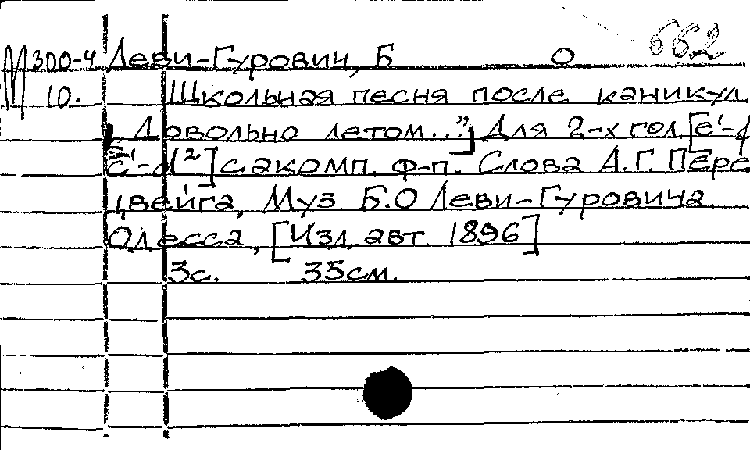 662
М 300-4 Леви-Гурович, Б О
10. Школьная песня после каникул
„Довольно летом..."] Для 2-х гол. [e'-d
c'-d²] с акомп. ф-п. Слова А.Г. Пере
цвейга, Муз Б.О Леви-Гуровича
Одесса, [Изд. авт. 1896]
3с. 35см.